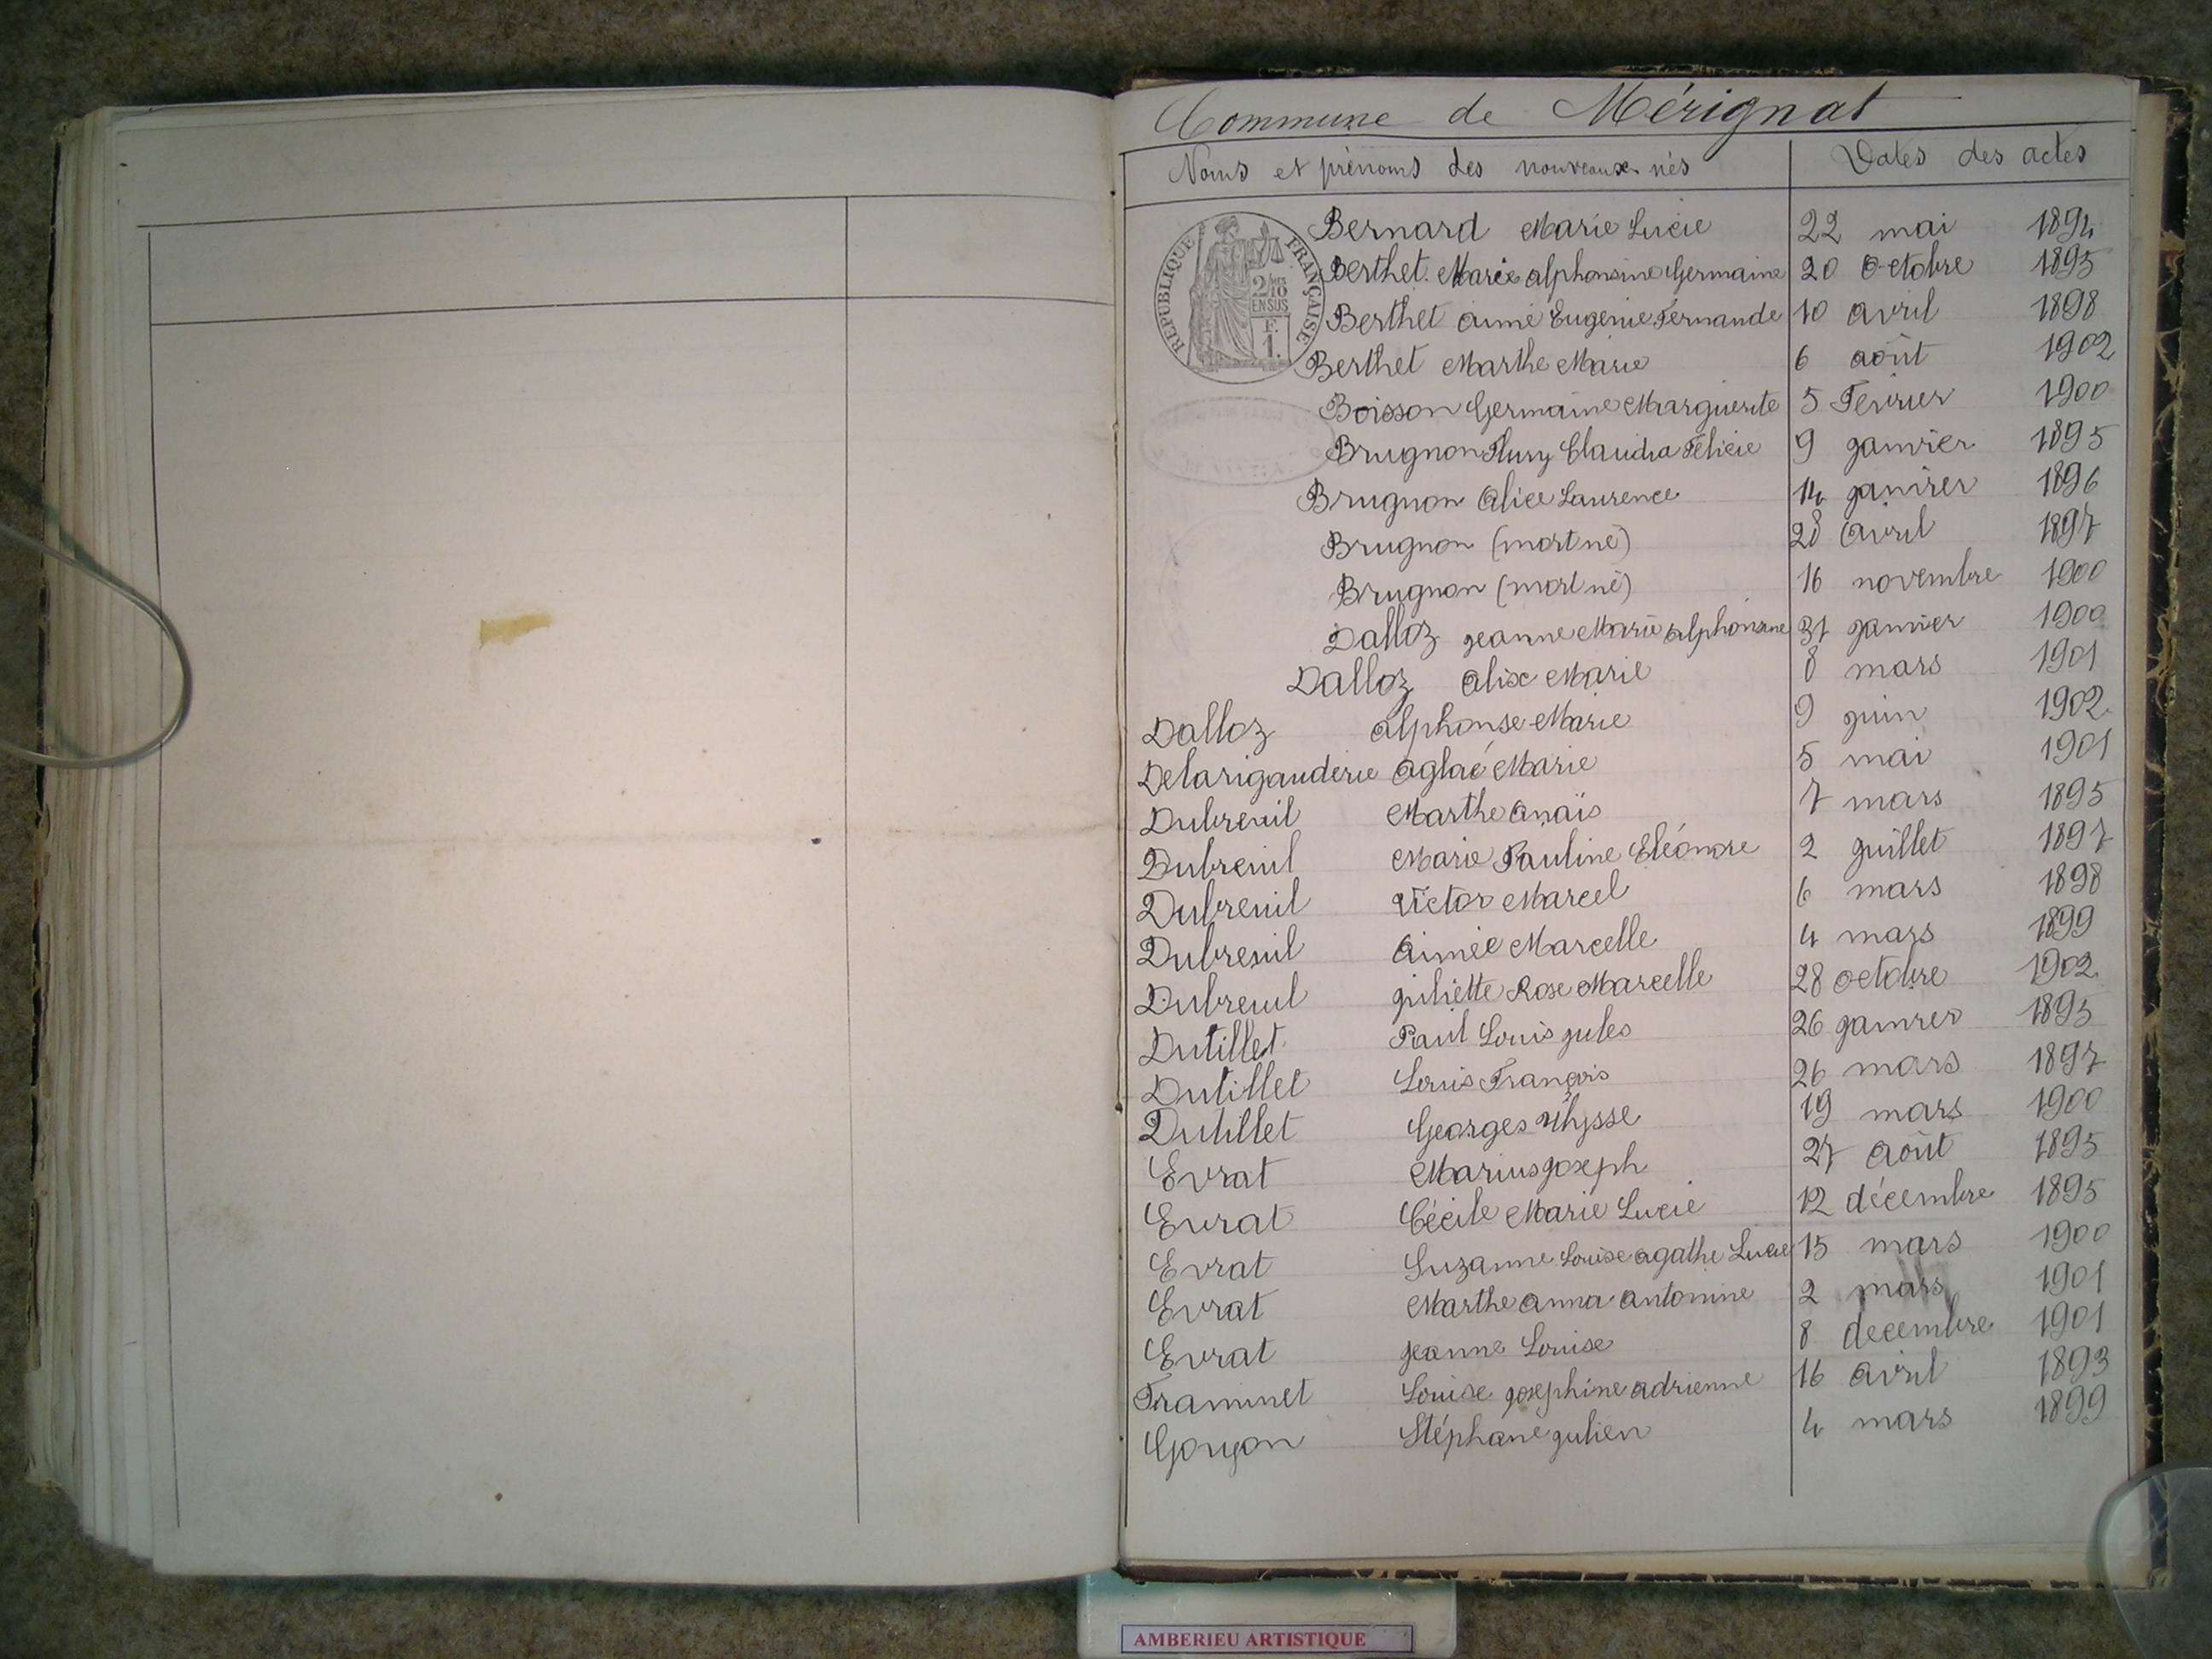 Commune de Mérignat
Noms et prénoms des nouveaux nés Dates des actes
RÉPUBLIQUE FRANÇAISE
2/10
EN SUS
F.
1.
Bernard Marie Lucie 22 mai 1894
Berthet Marie Alphonsine Germaine 20 octobre 1895
Berthet Aimé Eugénie Fernande 10 avril 1898
Berthet Marthe Marie 6 août 1902
Boisson Germaine Marguerite 5 Février 1900
Brugnon Flury Claudia Félicie 9 janvier 1895
Brugnon Alice Laurence 14 janvier 1896
Brugnon (mort né) 28 avril 1897
Brugnon (mort né) 16 novembre 1900
Dalloz Jeanne Marie Alphonsine 31 janvier 1900
Dalloz Alix Marie 8 mars 1901
Dalloz Alphonse Marie 9 juin 1902
Delarigauderie Aglaé Marie 5 mai 1901
Dubreuil Marthe Anaïs 7 mars 1895
Dubreuil Marie Pauline Eléonore 2 juillet 1897
Dubreuil Victor Marcel 6 mars 1898
Dubreuil Aimée Marcelle 4 mars 1899
Dubreuil Juliette Rose Marcelle 28 octobre 1902
Dutillet Paul Louis Jules 26 janvier 1895
Dutillet Louis François 26 mars 1897
Dutillet Georges Ulysse 19 mars 1900
Evrat Marius Joseph 27 Août 1895
Evrat Cécile Marie Lucie 12 décembre 1895
Evrat Suzanne Louise Agathe Lucie 15 mars 1900
Evrat Marthe Anna Antonine 2 mars 1901
Evrat Jeanne Louise 8 decembre 1901
Framinet Louise Joséphine Adrienne 16 avril 1893
Goyon Stéphane Julien 4 mars 1899
AMBERIEU ARTISTIQUE